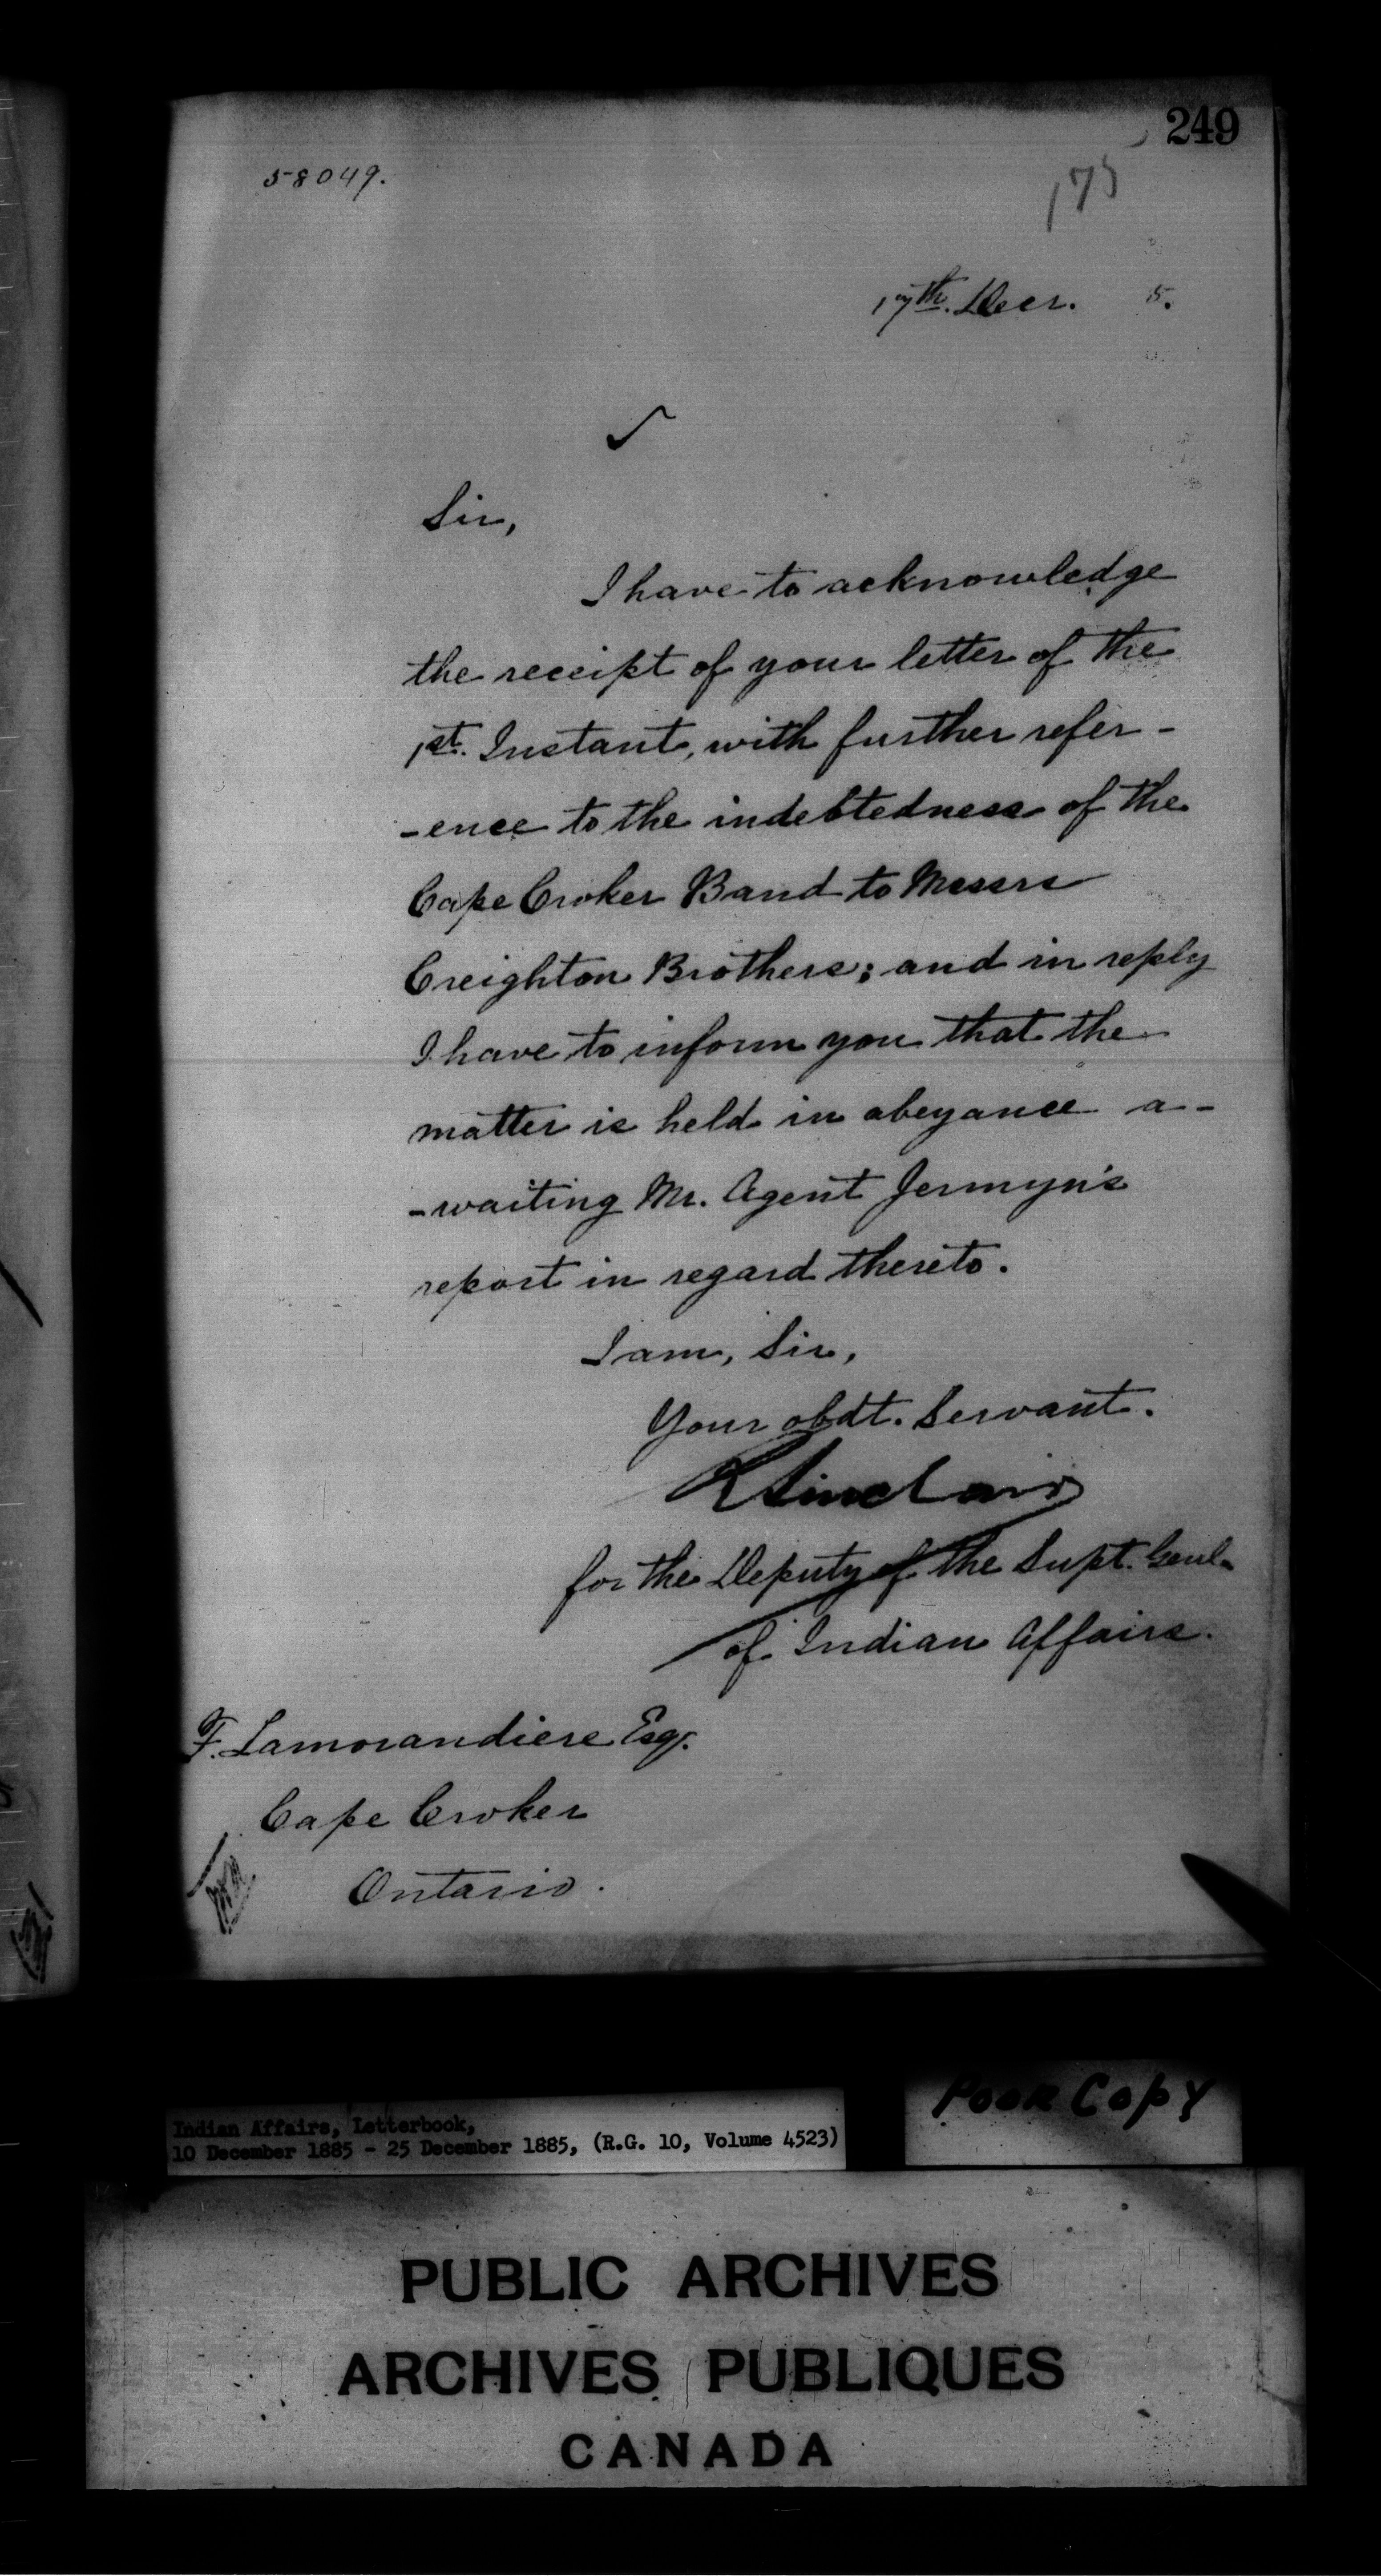 249
58049.
175
17th. Decr. 5.
Sir,
I have to acknowledge
the receipt of your letter of the
1st. Instant, with further refer-
-ence to the indebtedness of the
Cape Croker Band to Messrs
Creighton Brothers; and in reply
I have to inform you that the
matter is held in abeyance a-
-waiting Mr. Agent Jermyn's
report in regard thereto.
I am, Sir,
Your obdt. Servant.
R Sinclair
for the Deputy of the Supt. Genl.
of Indian Affairs.
F. Lamorandiere Esq.
Cape Croker
Ontario.
Indian Affairs, Letterbook,
10 December 1885 - 25 December 1885, (R.G. 10, Volume 4523)
Poor Copy
PUBLIC ARCHIVES
ARCHIVES PUBLIQUES
CANADA